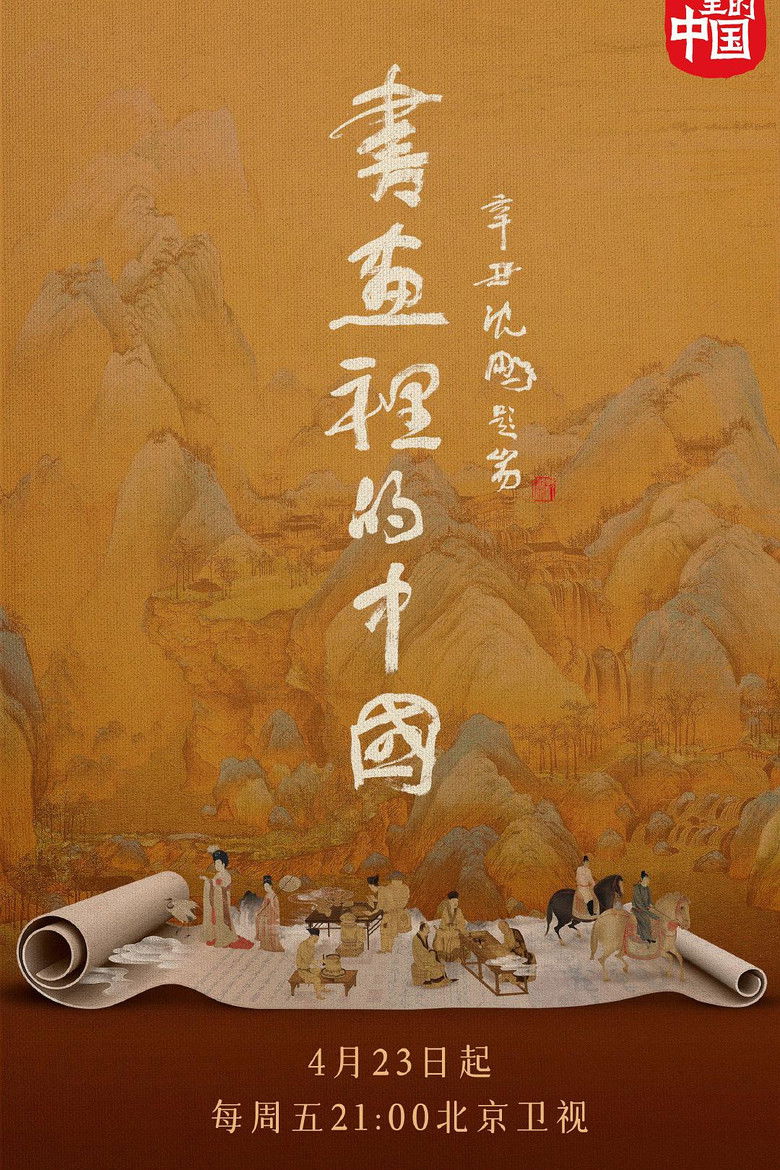 里的
中国
書畫裡的中國
辛丑沈鹏题耑
4月23日起
每周五21:00北京卫视